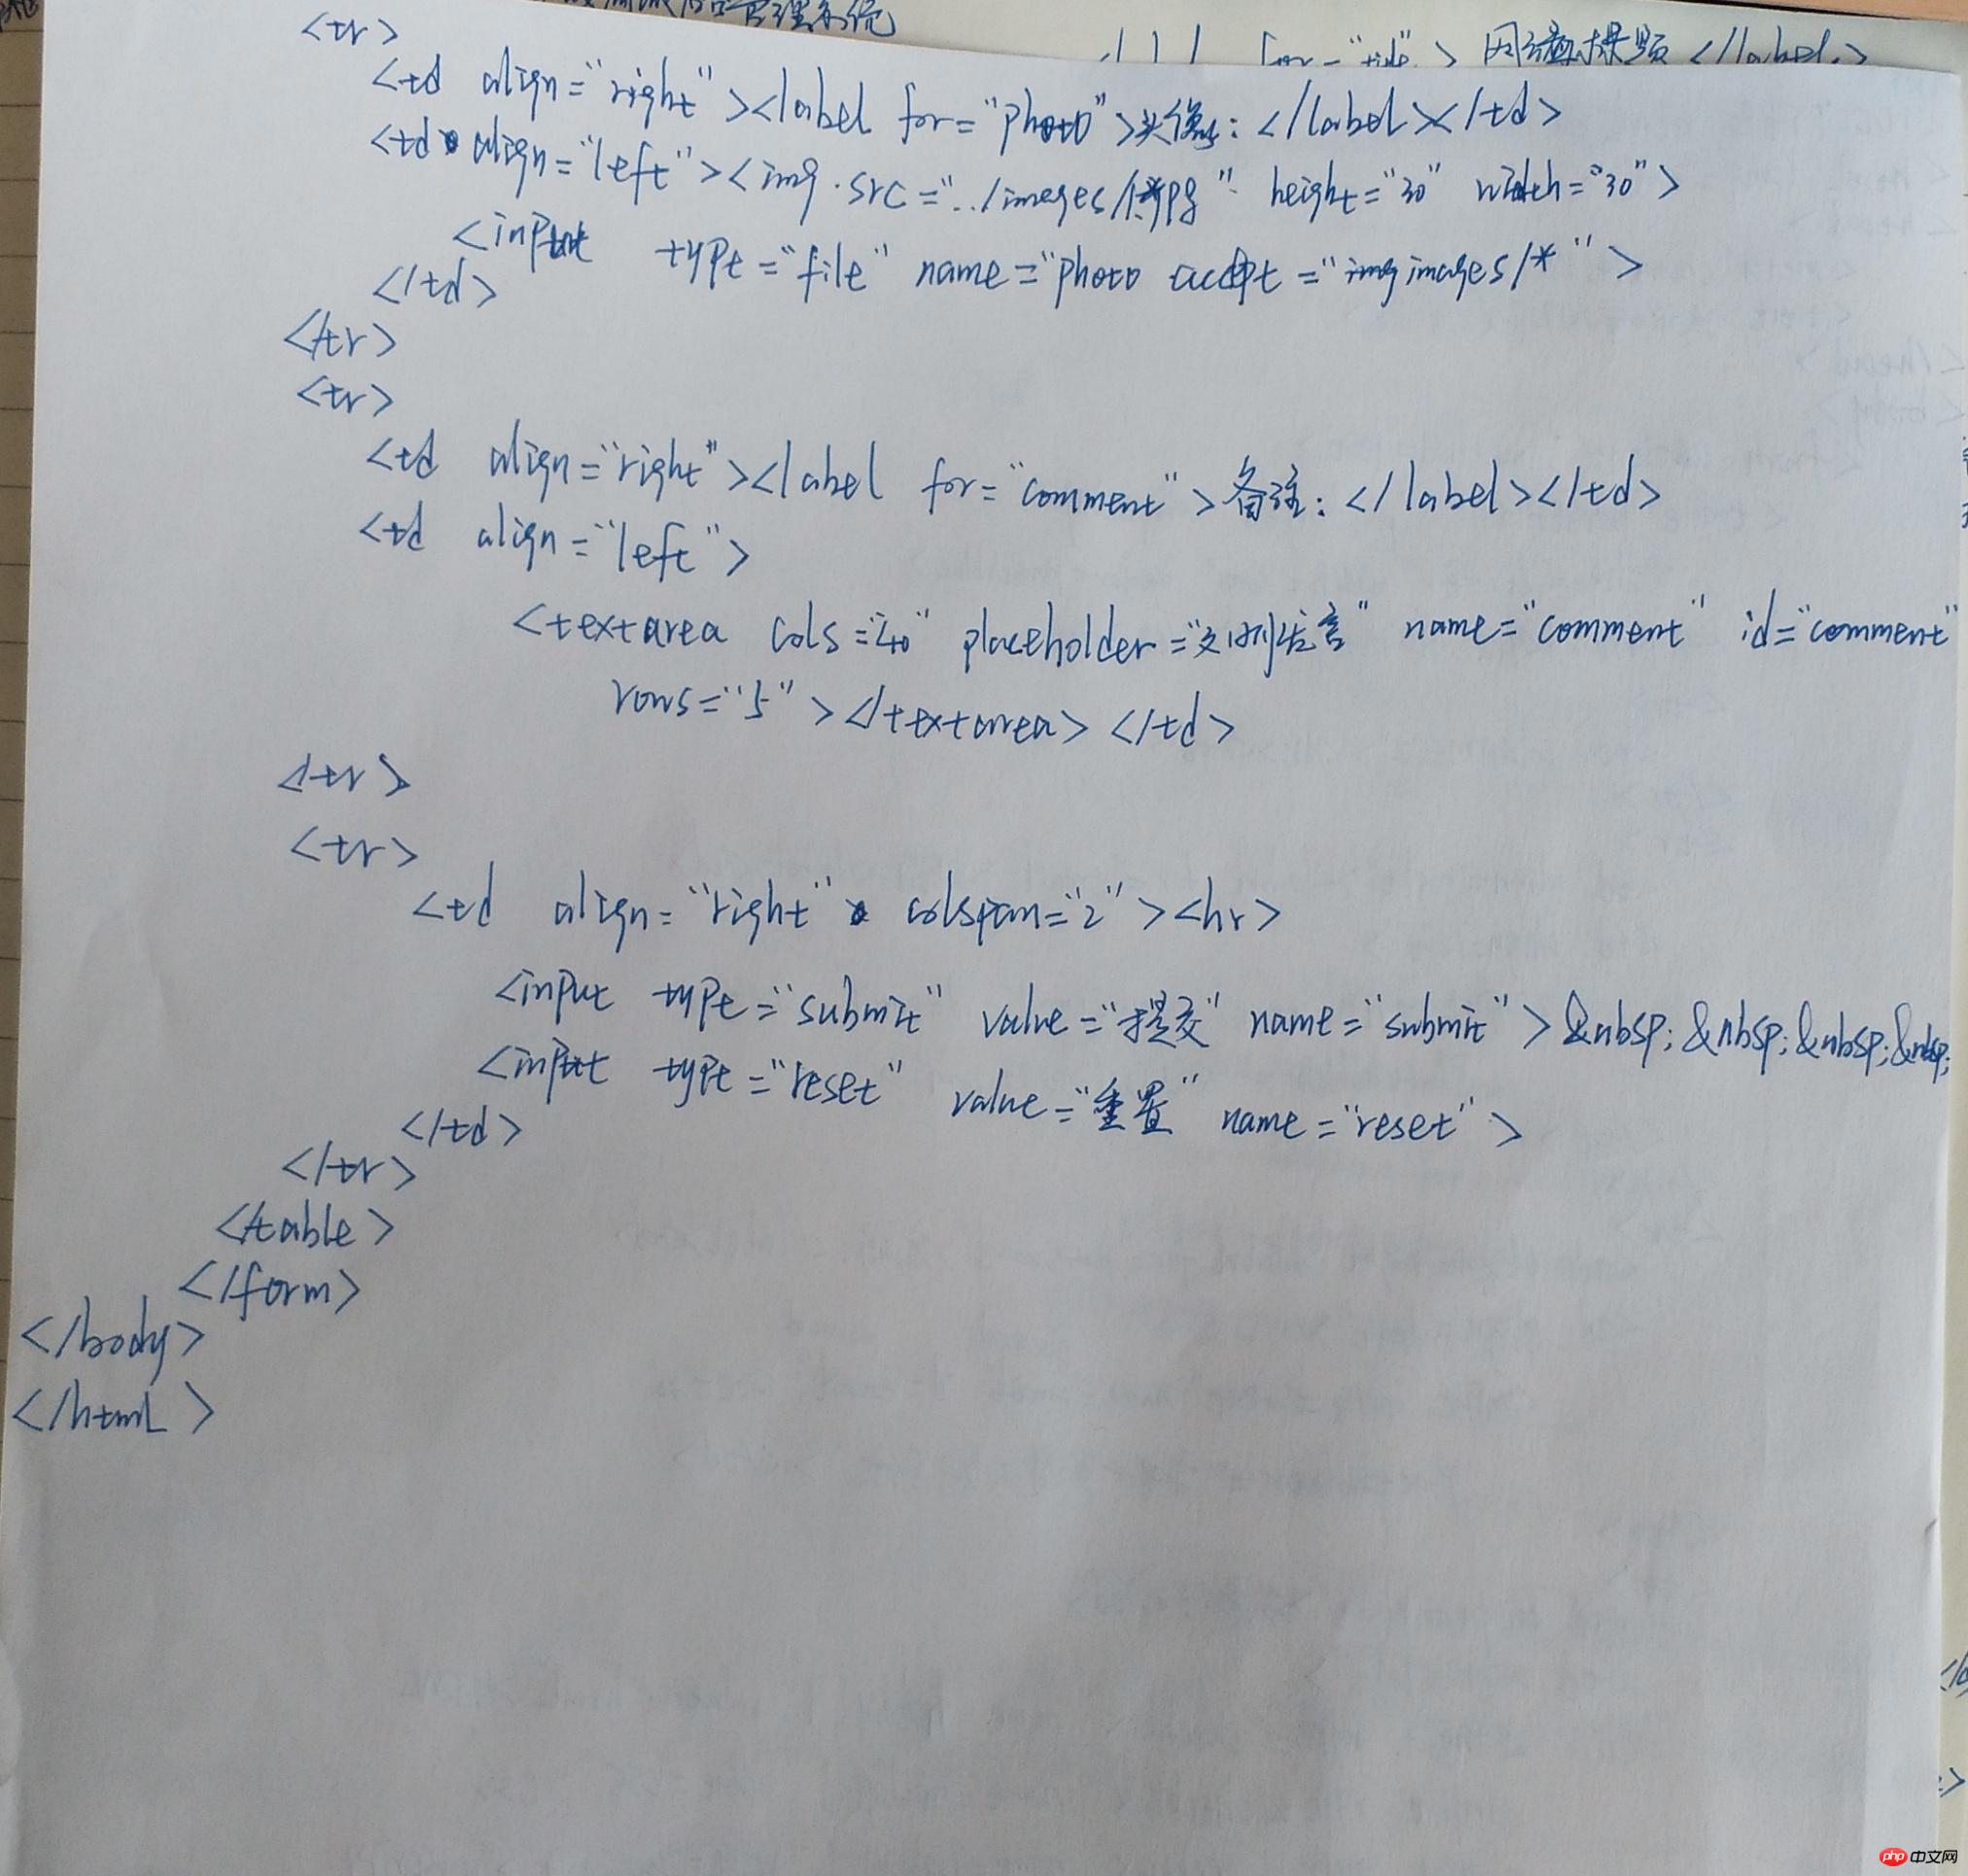 管理系统
for="title"> </label>
<tr>
<td align="right"><label for="photo">头像:</label></td>
<td align="left"><img src="../images/ jpg" height="30" width="30">
<input type="file" name="photo accept="images/*">
</td>
</tr>
<tr>
<td align="right"><label for="comment">备注:</label></td>
<td align="left">
<textarea cols="40" placeholder="文明发言" name="comment" id="comment"
rows="5"></textarea></td>
</tr>
<tr>
<td align="right" colspan="2"><hr>
<input type="submit" value="提交" name="submit">&nbsp;&nbsp;&nbsp;&nbsp;
<input type="reset" value="重置" name="reset">
</td>
</tr>
</table>
</form>
</body>
</html>
php 中文网